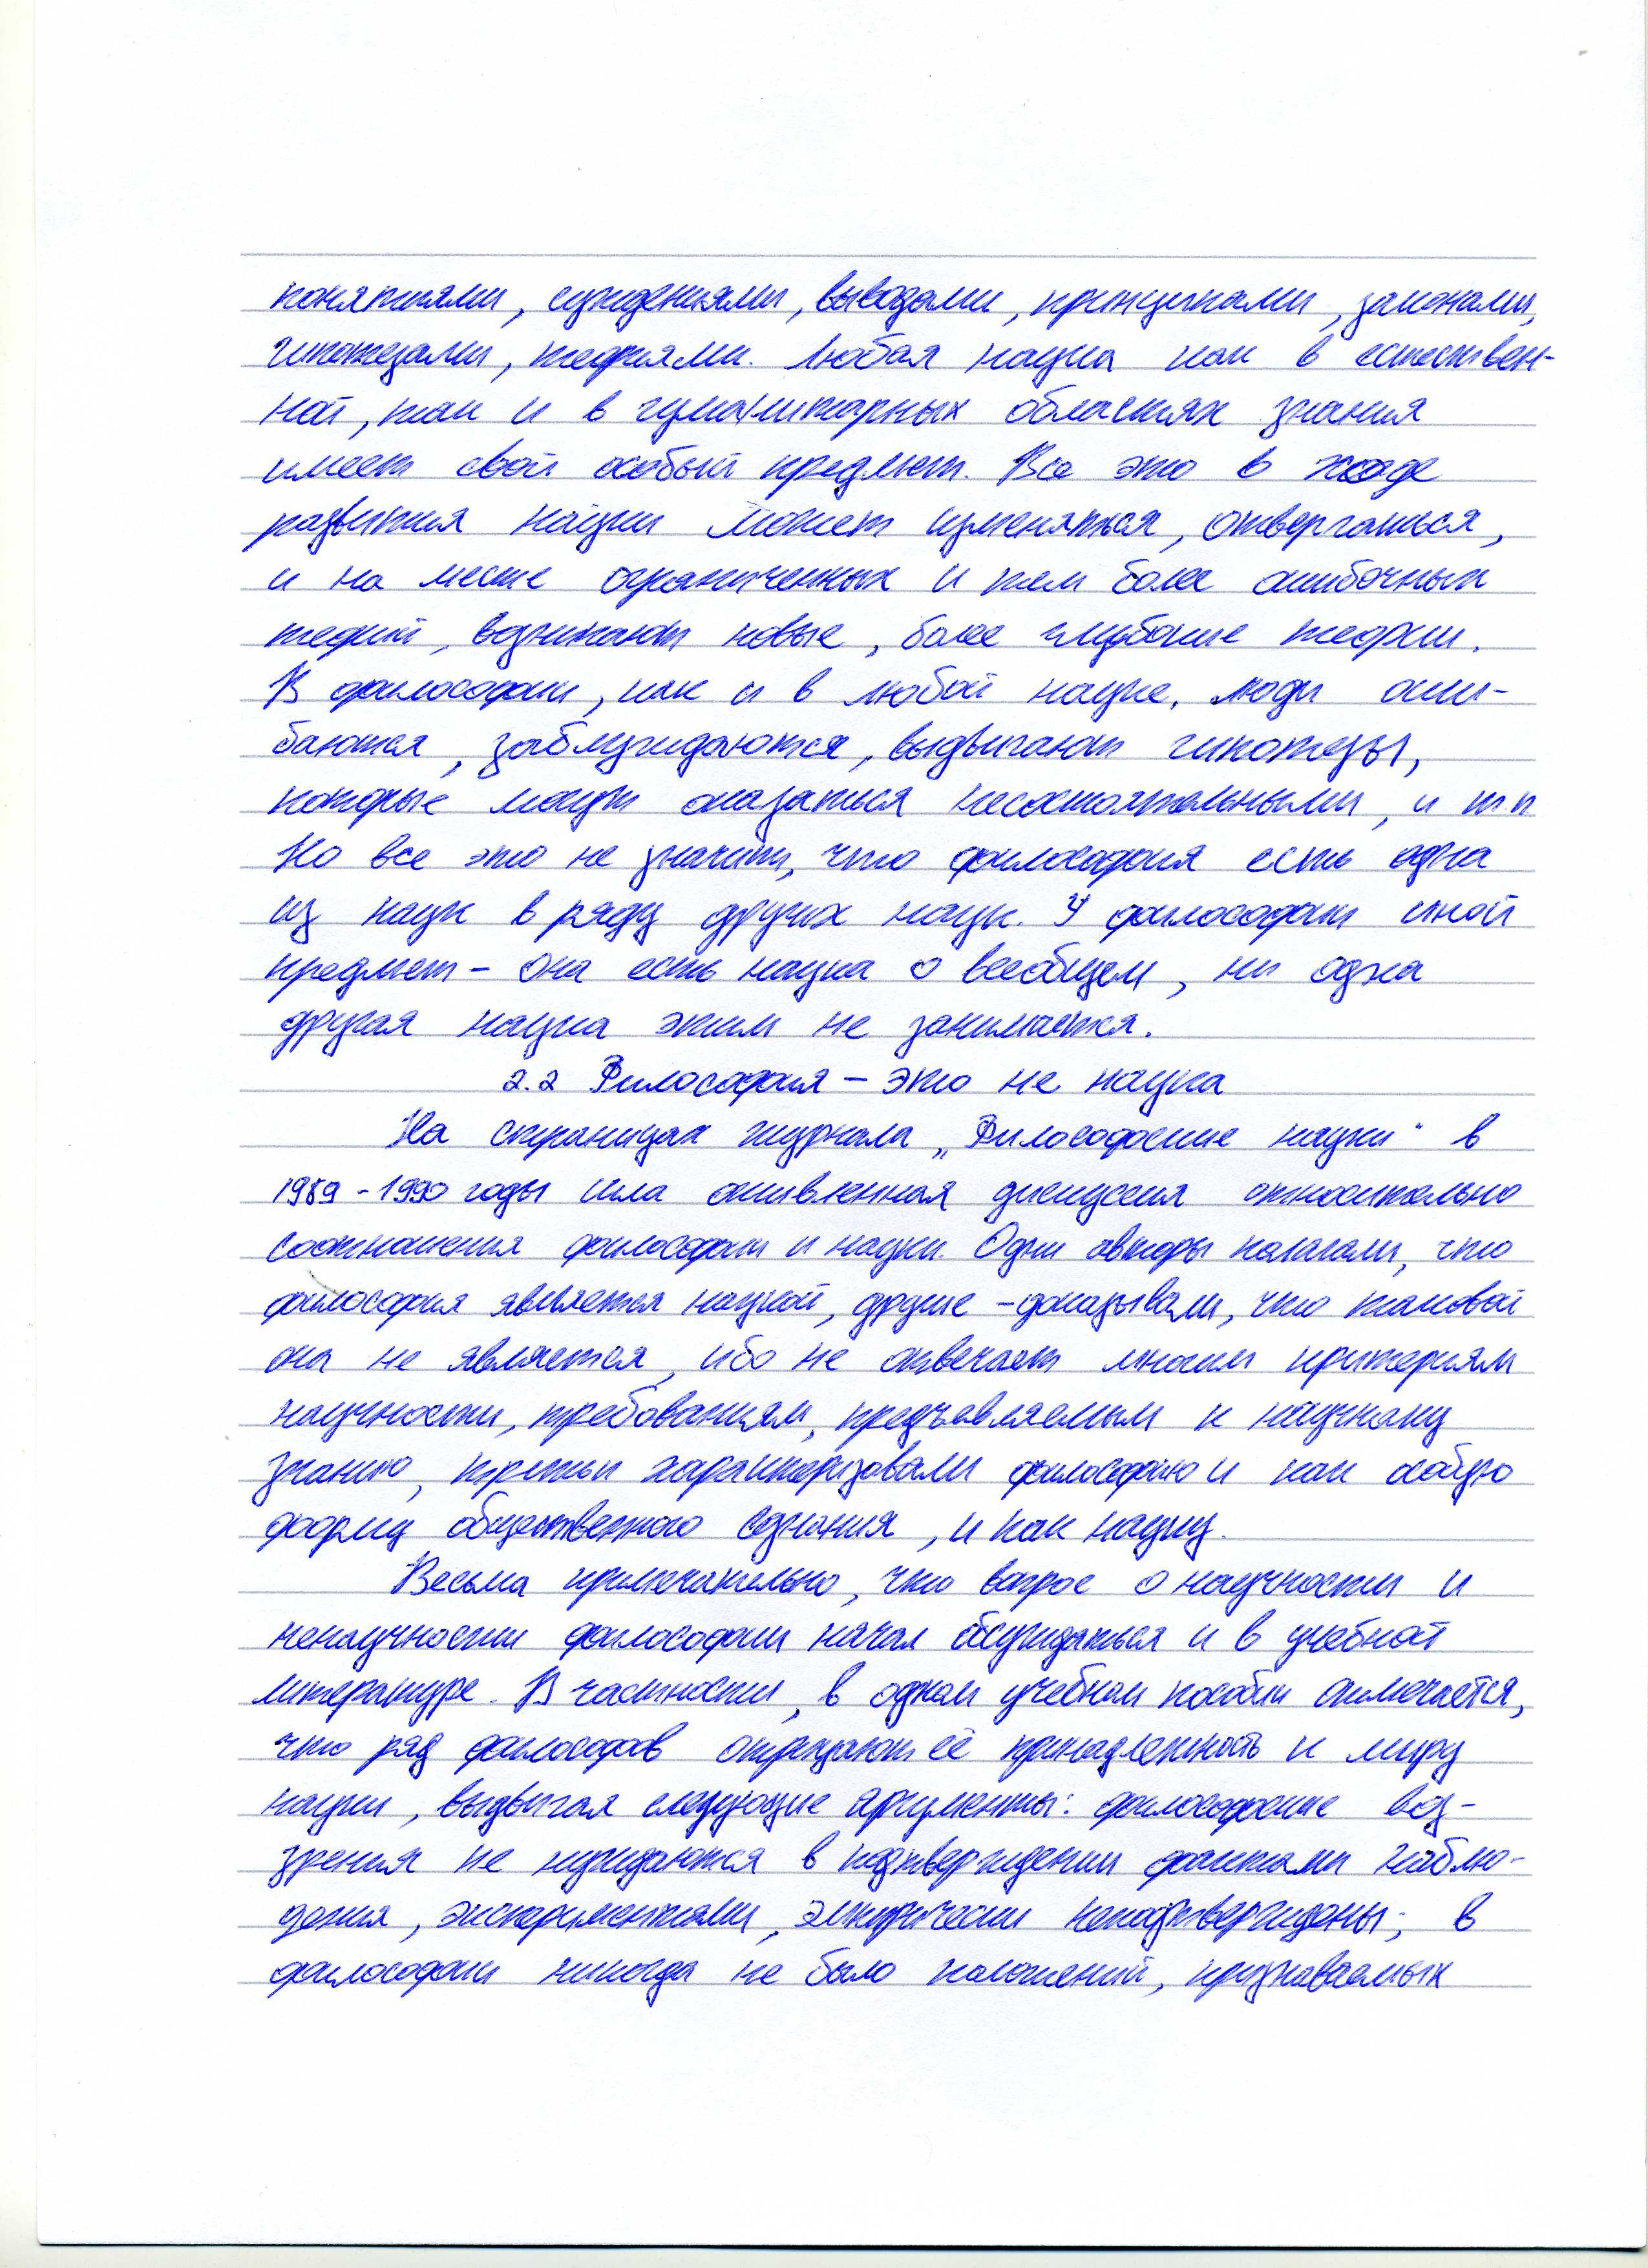 понятиями, суждениями, выводами, принципами, законами,
гипотезами, теориями. Любая наука как в естествен-
ной, так и в гуманитарных областях знания
имеет свой особый предмет. Все это в ходе
развития науки может изменяться, отвергаться,
и на месте ограниченных и тем более ошибочных
теорий, возникают новые, более глубокие теории.
В философии, как и в любой науке, люди оши-
баются, заблуждаются, выдвигают гипотезы,
которые могут оказаться несостоятельными, и т п
Но все это не значит, что философия есть одна
из наук в ряду других наук. У философии иной
предмет - Она есть наука о всеобщем, ни одна
другая наука этим не занимается.
2.2 Философия - это не наука
На страницах журнала „Философские науки" в
1989 - 1990 годы шла оживленная дискуссия относительно
соотношения философии и науки. Одни авторы полагали, что
философия является наукой, другие - доказывали, что таковой
она не является, ибо не отвечает многим критериям
научности, требованиям, предъявляемым к научному
знанию, третьи характеризовали философию и как особую
форму общественного сознания, и как науку.
Весьма примечательно, что вопрос о научности и
ненаучности философии начал обсуждаться и в учебной
литературе. В частности, в одном учебном пособии отмечается,
что ряд философов отрицают её принадлежность к миру
науки, выдвигая следующие аргументы: философские воз-
зрения не нуждаются в подтверждении фактами наблю-
дения, экспериментами, эмпирически неподтверждены; в
философии никогда не было положений, признаваемых